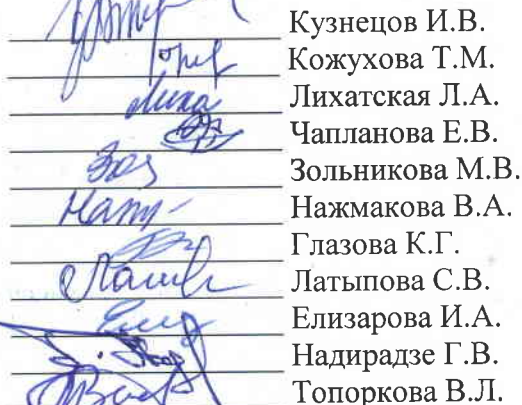 Кузнецов И.В.
Кожухова Т.М.
Лихатская Л.А.
Чапланова Е.В.
Зольникова М.В.
Нажмакова В.А.
Глазова К.Г.
Латыпова С.В.
Елизарова И.А.
Надирадзе Г.В.
Топоркова В.Л.